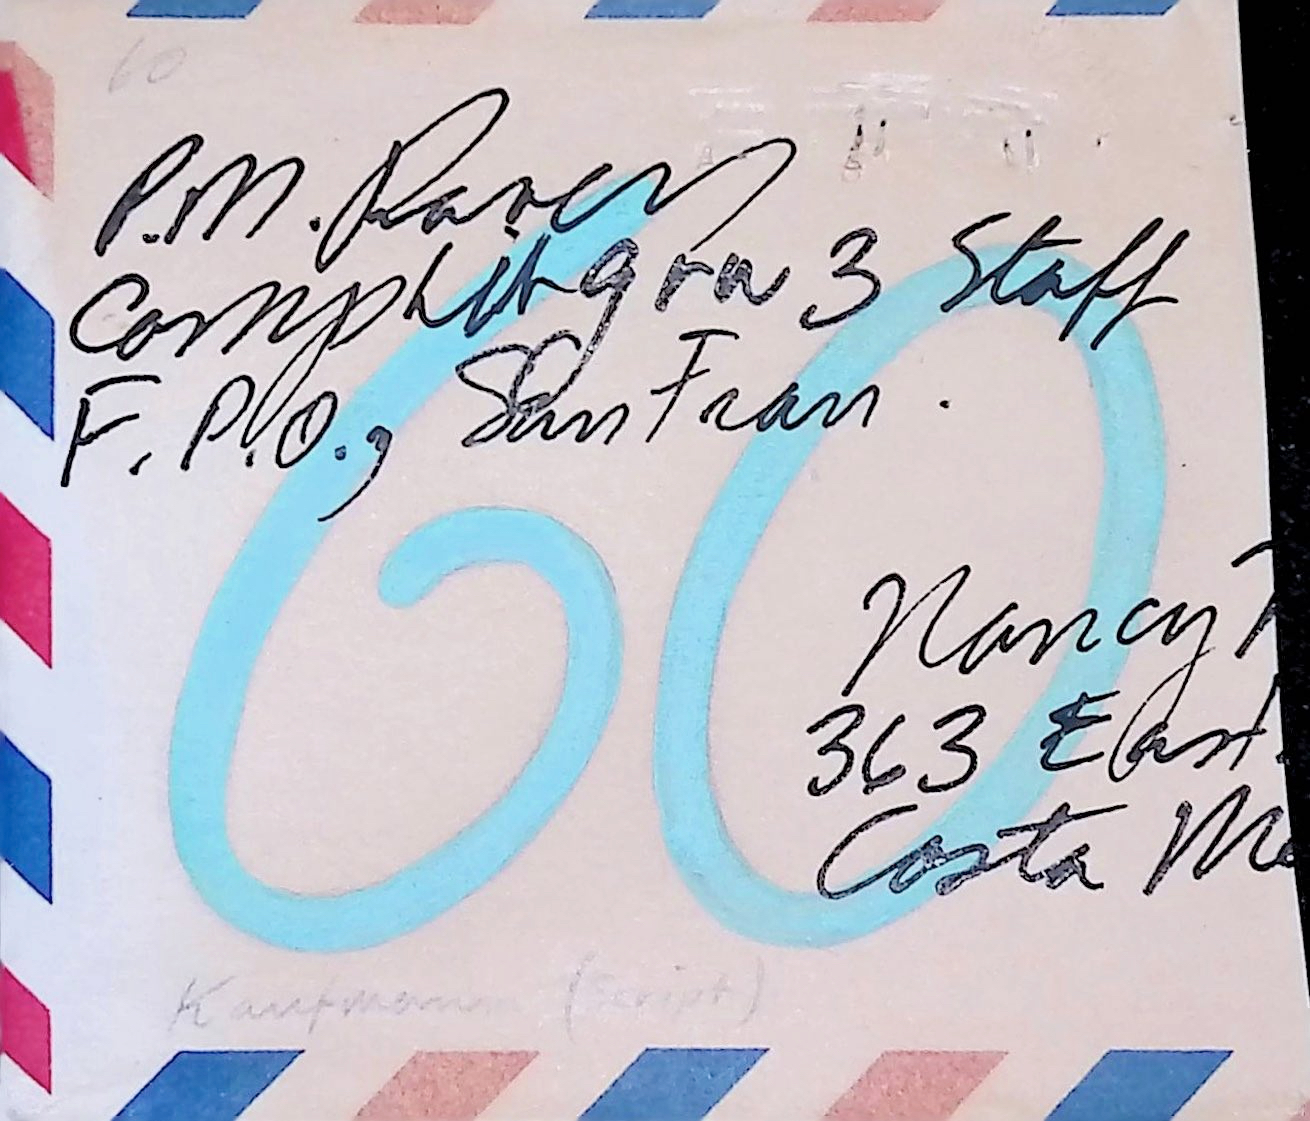 60
P.M. Raven
Comphibgru 3 Staff
F.P.O., San Fran.
60
Nancy
363 East
Costa Me
Kaufmann (Script)